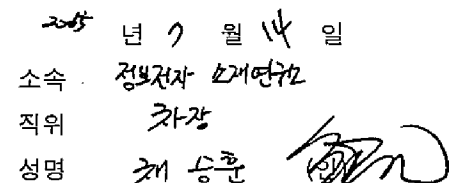 2015 년 7 월 14 일
소속 정보전자 소재연구소
직위 차장
성명 채 승훈